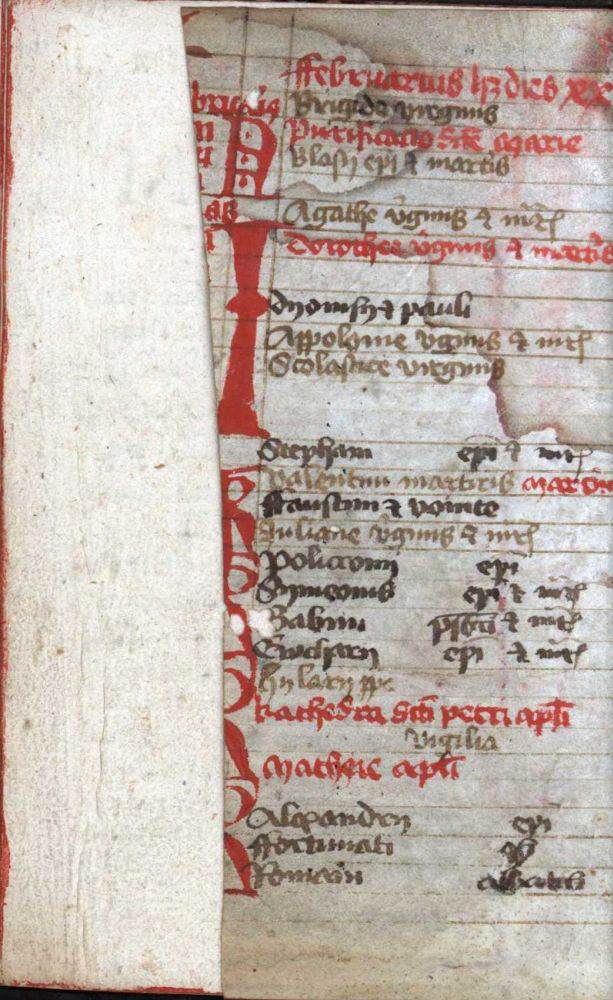 ffebruarius hz dies xx
Brigide virginis
Purificacio sce Marie
Blasij epi & martiris
Agathe vginis & mr
Dorothee vginis & martiris
dyonisij & pauli
Appolonie vginis & mr
Scolastice virginis
Stephani epi & mr
Valentini martiris
ffaustini & Iouite
Iuliane vginis & mr
Policronij epi
Symeonis epi & mr
Sabini psbiti & mr
Eucharij epi & mr
hylarij pp
kathedra sci petri apli
vigilia
Matheie apli
Alexandrij epi
ffortunati
Romani abbatis